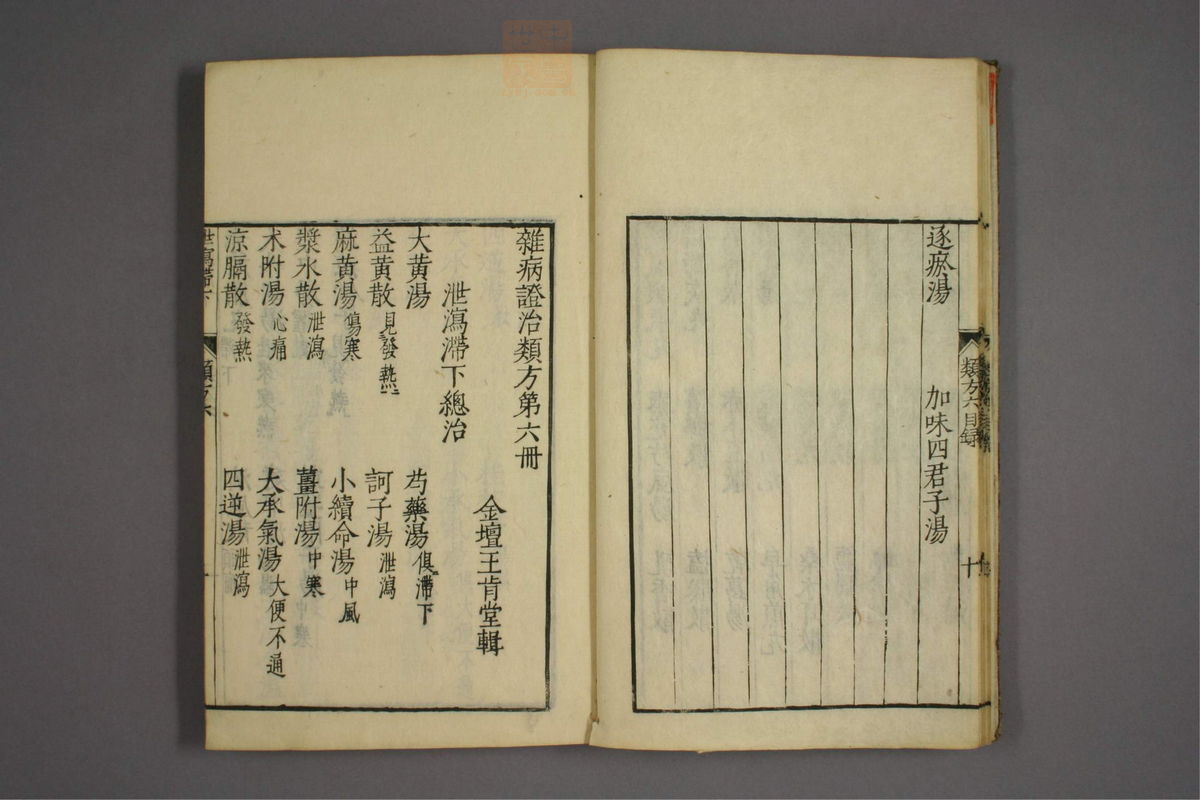 逐瘀湯 加味四君子湯
類方六目録 十
雜病證治類方第六冊
金壇王肯堂輯
泄瀉滯下總治
大黃湯 芍藥湯俱滯下
益黃散見發熱 訶子湯泄瀉
麻黃湯傷寒 小續命湯中風
漿水散泄瀉 薑附湯中寒
朮附湯心痛 大承氣湯大便不通
涼膈散發熱 四逆湯泄瀉
泄瀉滯下 類方六